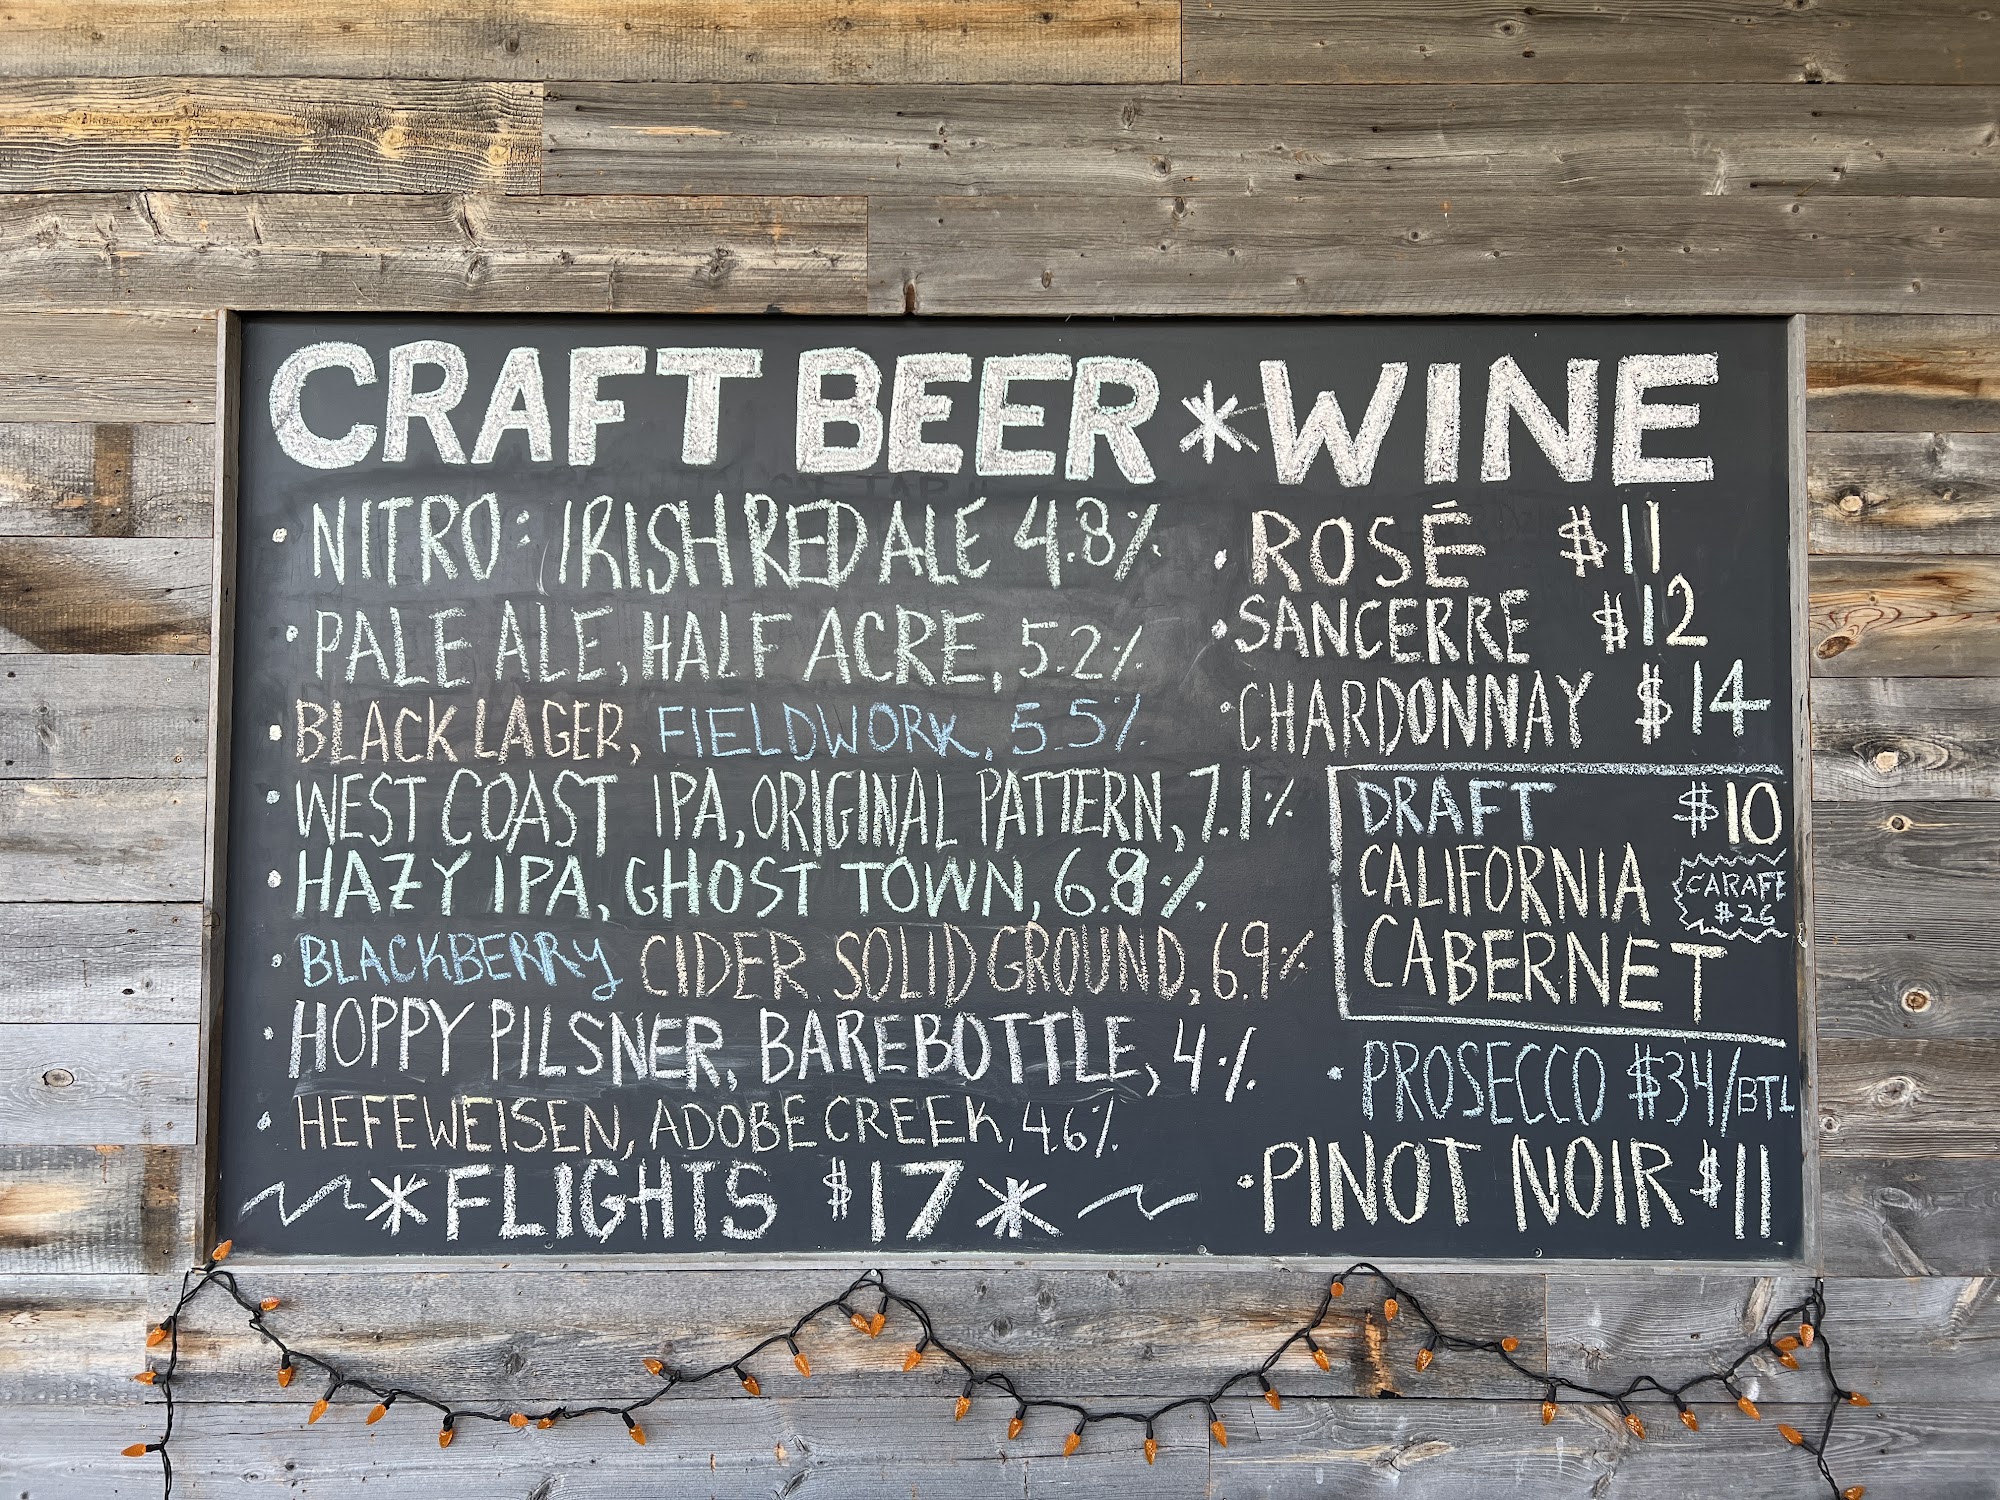 CRAFT BEER * WINE
• NITRO: IRISH RED ALE 4.8%
• PALE ALE, HALF ACRE, 5.2%
• BLACK LAGER, FIELDWORK, 5.5%
• WEST COAST IPA, ORIGINAL PATTERN, 7.1%
• HAZY IPA, GHOST TOWN, 6.8%
• BLACKBERRY CIDER, SOLID GROUND, 6.9%
• HOPPY PILSNER, BAREBOTTLE, 4%
• HEFEWEISEN, ADOBE CREEK, 4.6%
* FLIGHTS $17 *
• ROSÉ $11
• SANCERRE $12
• CHARDONNAY $14
DRAFT $10
CALIFORNIA
CABERNET
CARAFE
$26
• PROSECCO $34/BTL
• PINOT NOIR $11